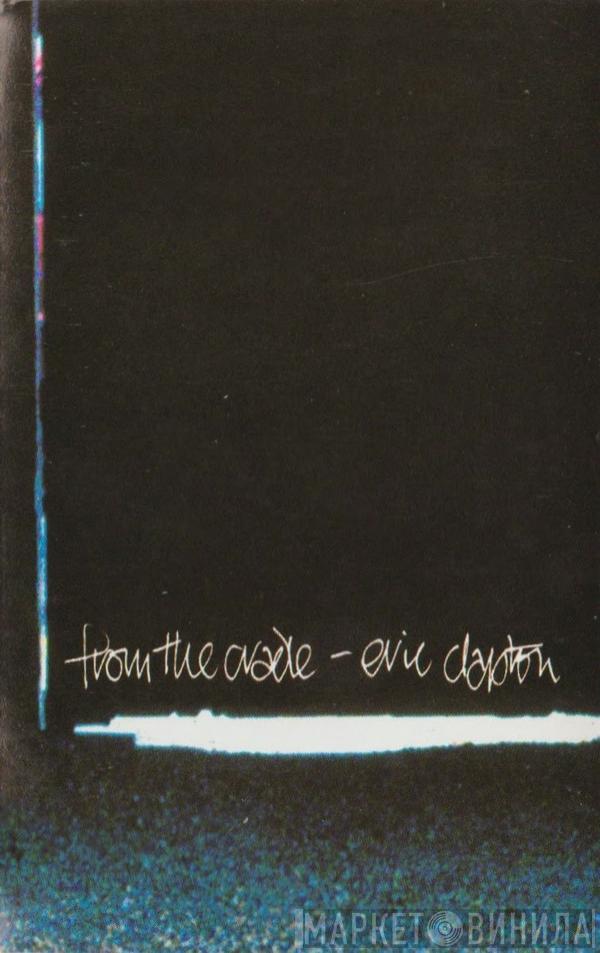 from the cradle - eric clapton
МАРКЕТ ВИНИЛА